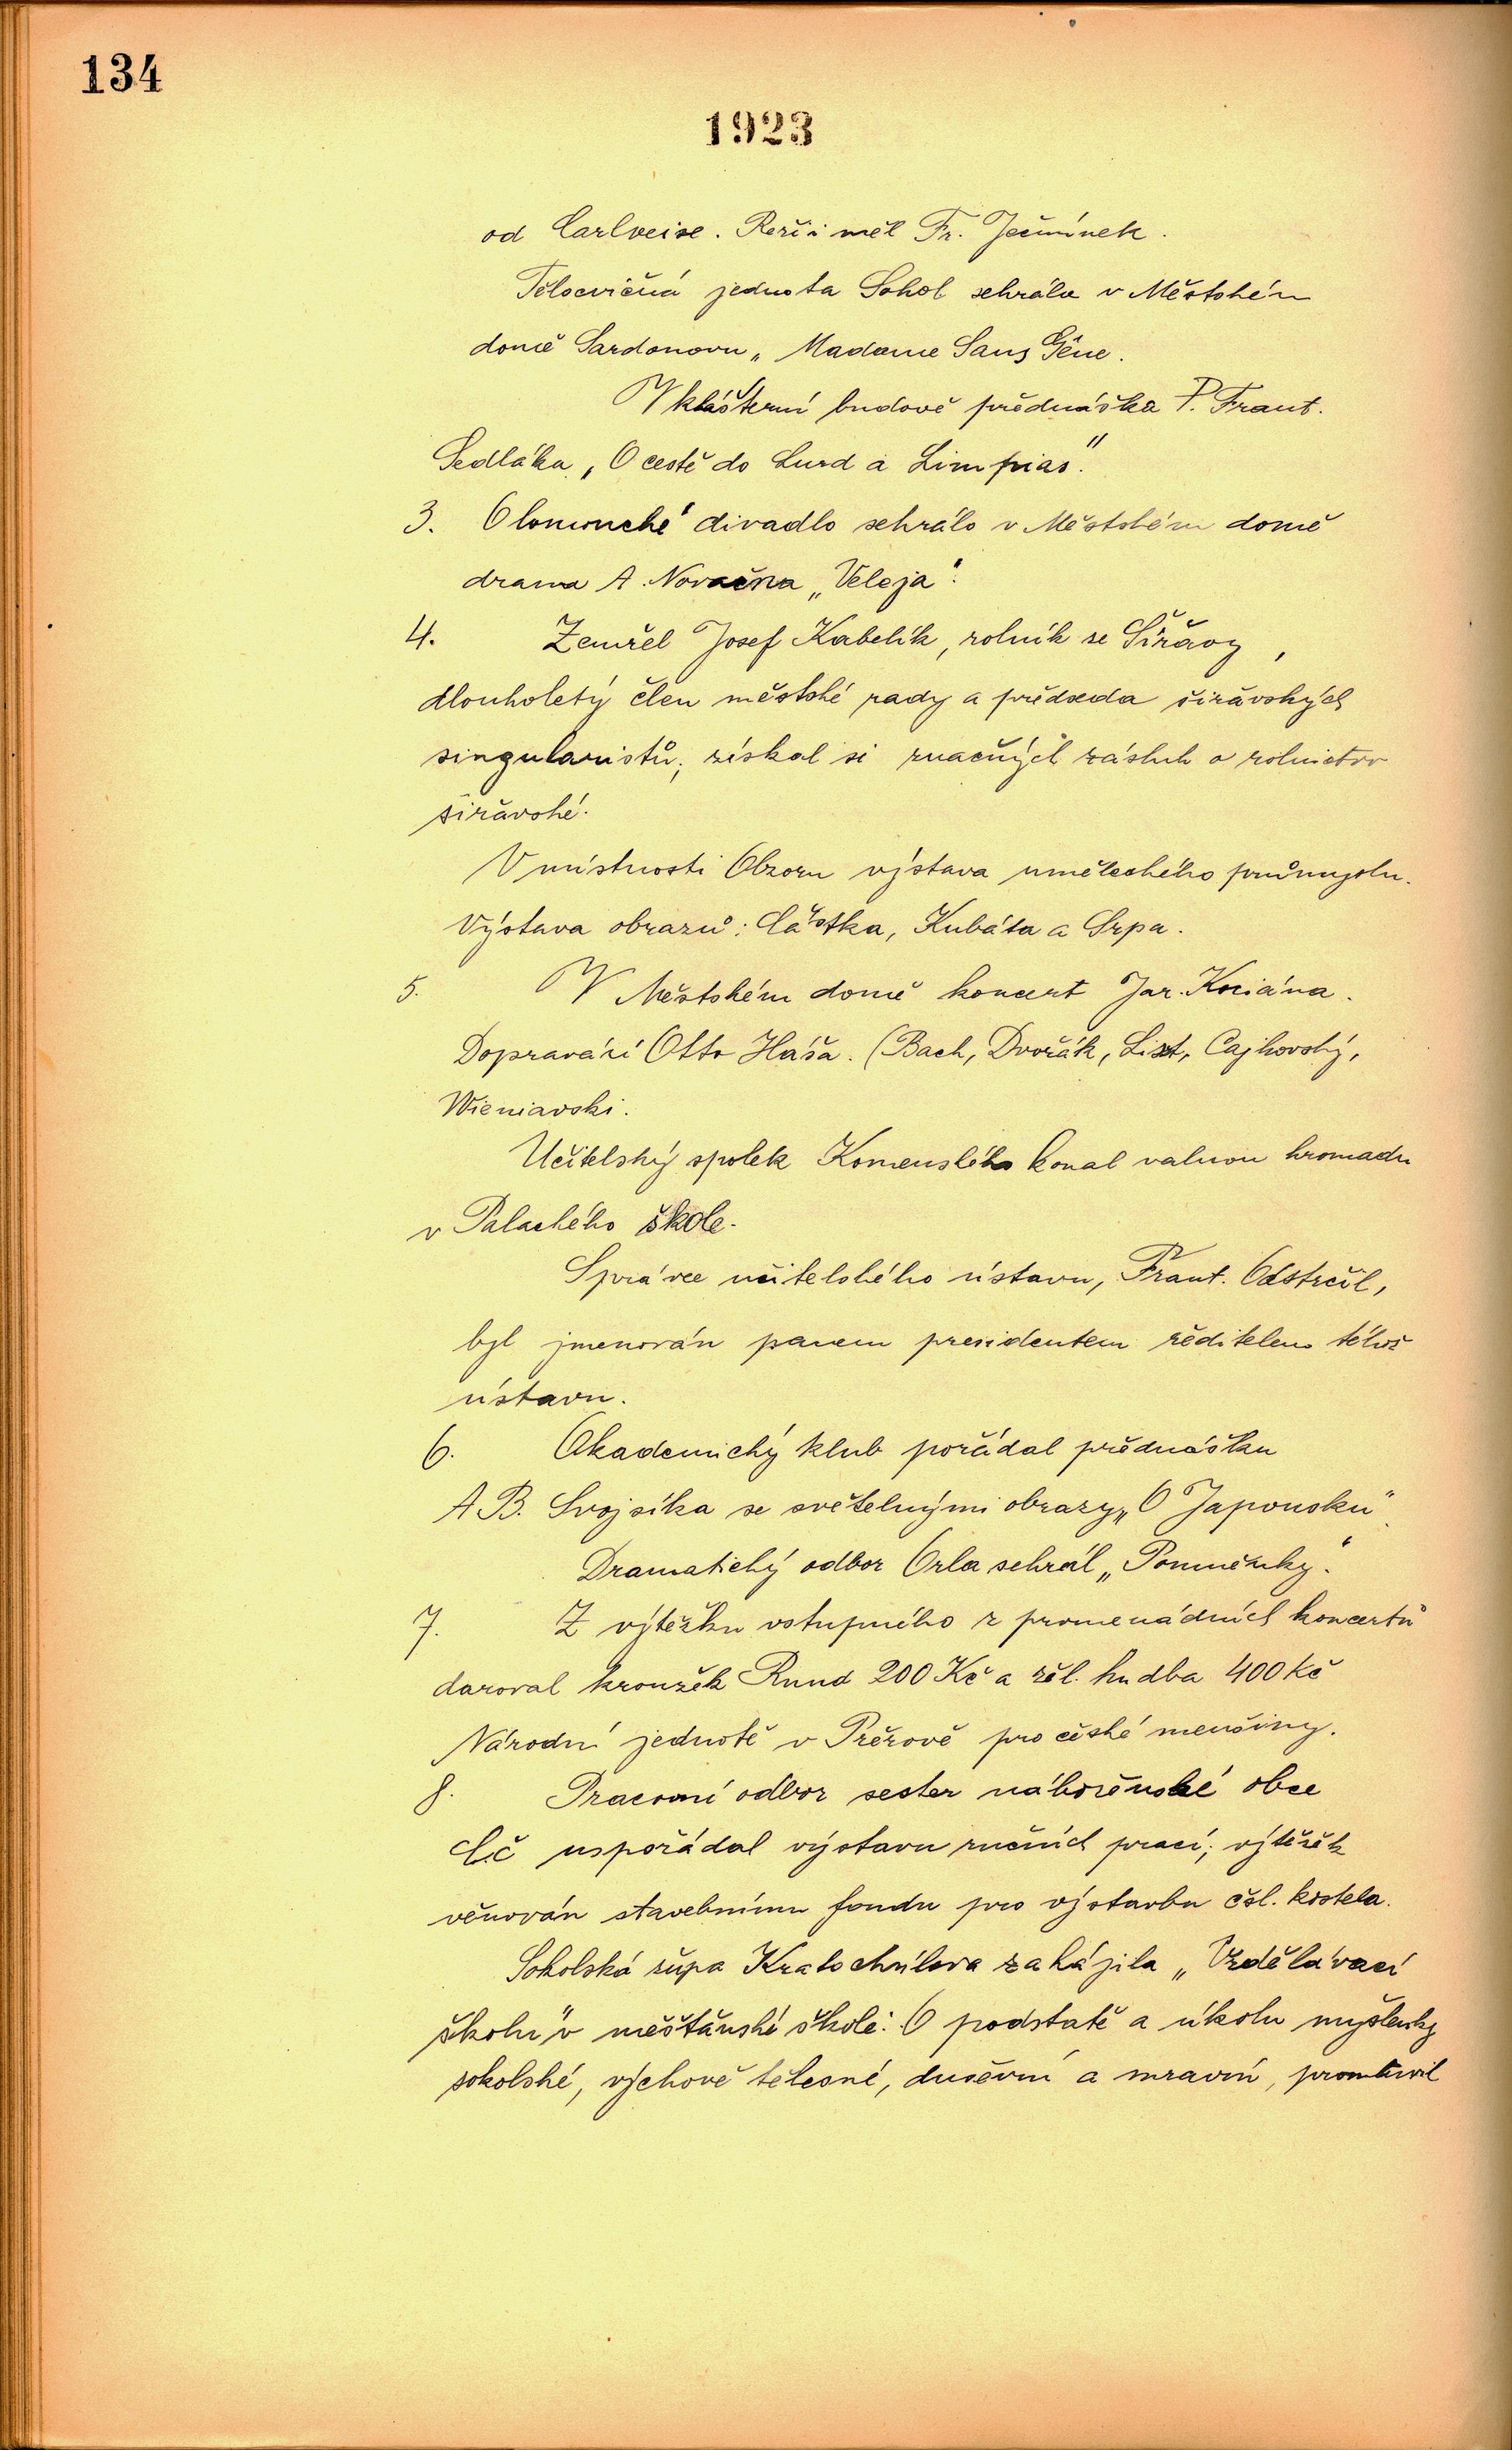 134
1923
od Carlveise. Režii měl Fr. Ječmínek.
Tělocvičná jednota Sokol sehrála v Městském
domě Sardonovu „Madame Sans Gêne.
V klášterní budově přednáška P. Frant.
Sedláka „O cestě do Lurd a Limpias".
3. Olomoucké divadlo sehrálo v Městském domě
drama A. Novačna „Veleja".
4. Zemřel Josef Kabelík, rolník se Šířavy,
dlouholetý člen městské rady a předseda šířavských
singularistů; získal si značných zásluh o rolnictvo
šířavské.
V místnosti Obzoru výstava uměleckého průmyslu.
Výstava obrazů: Částka, Kubáta a Srpa.
5. V Městském domě koncert Jar. Kociána.
Dopravází Otto Háša. (Bach, Dvořák, Liszt, Čajkovský,
Wieniavski.
Učitelský spolek Komenského konal valnou hromadu
v Palackého škole.
Správce učitelského ústavu, Frant. Odstrčil,
byl jmenován panem presidentem ředitelem téhož
ústavu.
6. Akademický klub pořádal přednášku
A.B. Svojsíka se světelnými obrazy „O Japonsku"
Dramatický odbor Orla sehrál „Pomněnky".
7. Z výtěžku vstupného z promenádních koncertů
daroval kroužek Rund 200 Kč a žel. hudba 400 Kč
Národní jednotě v Přerově pro české menšiny.
8. Pracovní odbor sester náboženské obce
CČ uspořádal výstavu ručních prací; výtěžek
věnován stavebnímu fondu pro výstavbu čsl. kostela.
Sokolská župa Kratochvílova zahájila „Vzdělávací
školu" v měšťanské škole. O podstatě a úkolu myšlenky
sokolské, výchově tělesné, duševní a mravní, promluvil